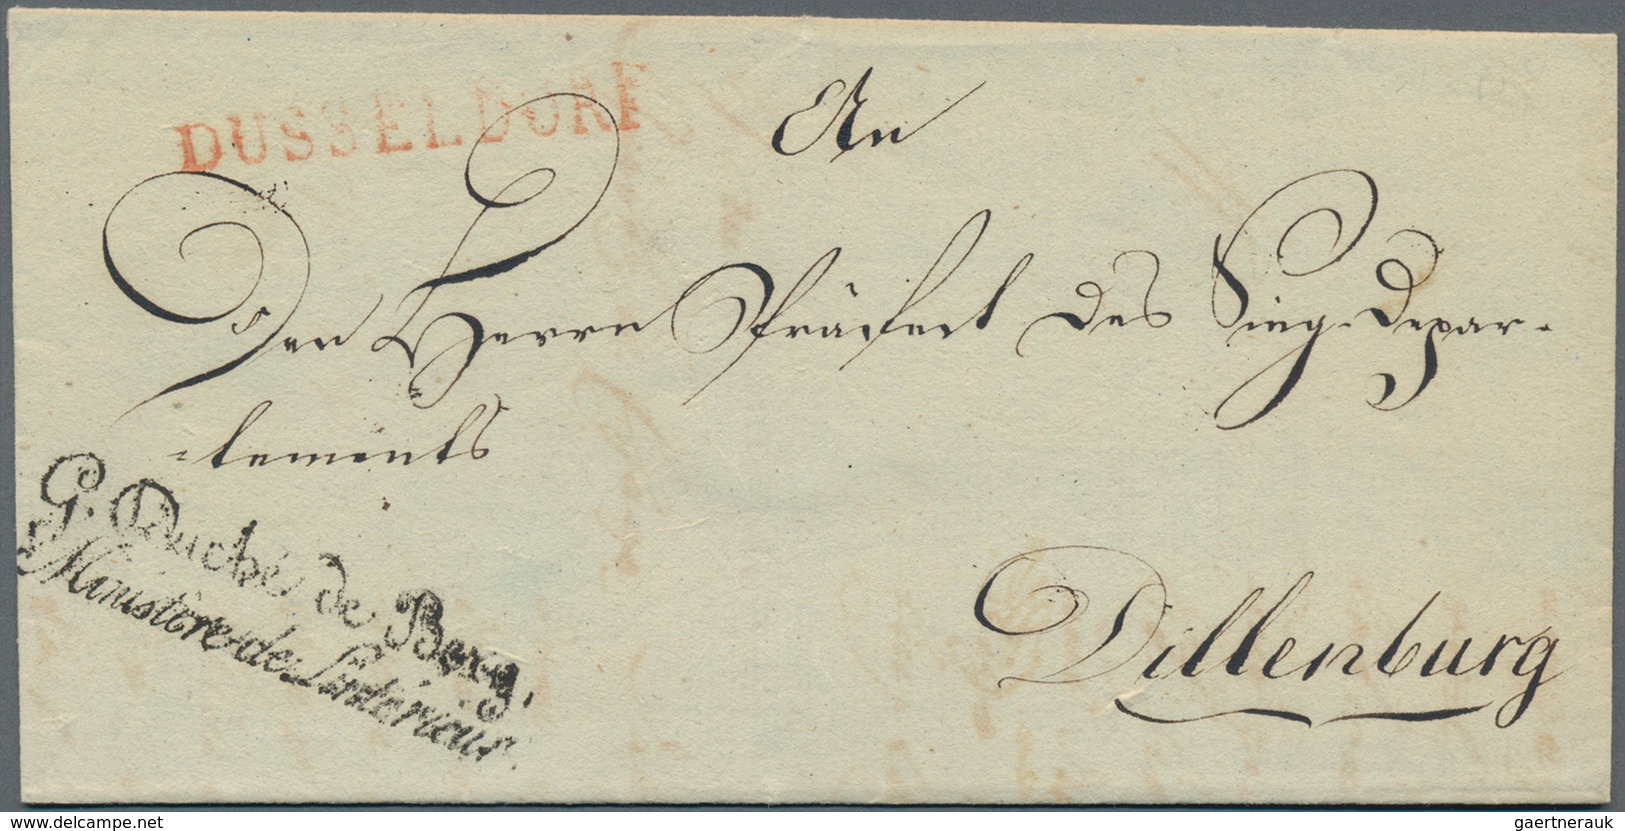 DUSSELDORF
An
Den Herrn Präfect des Sieg-Depar-
-tements
G. Duché de Berg.
Ministère de L'intérieur.
Dillenburg
delcampe.net
gaertnerauk